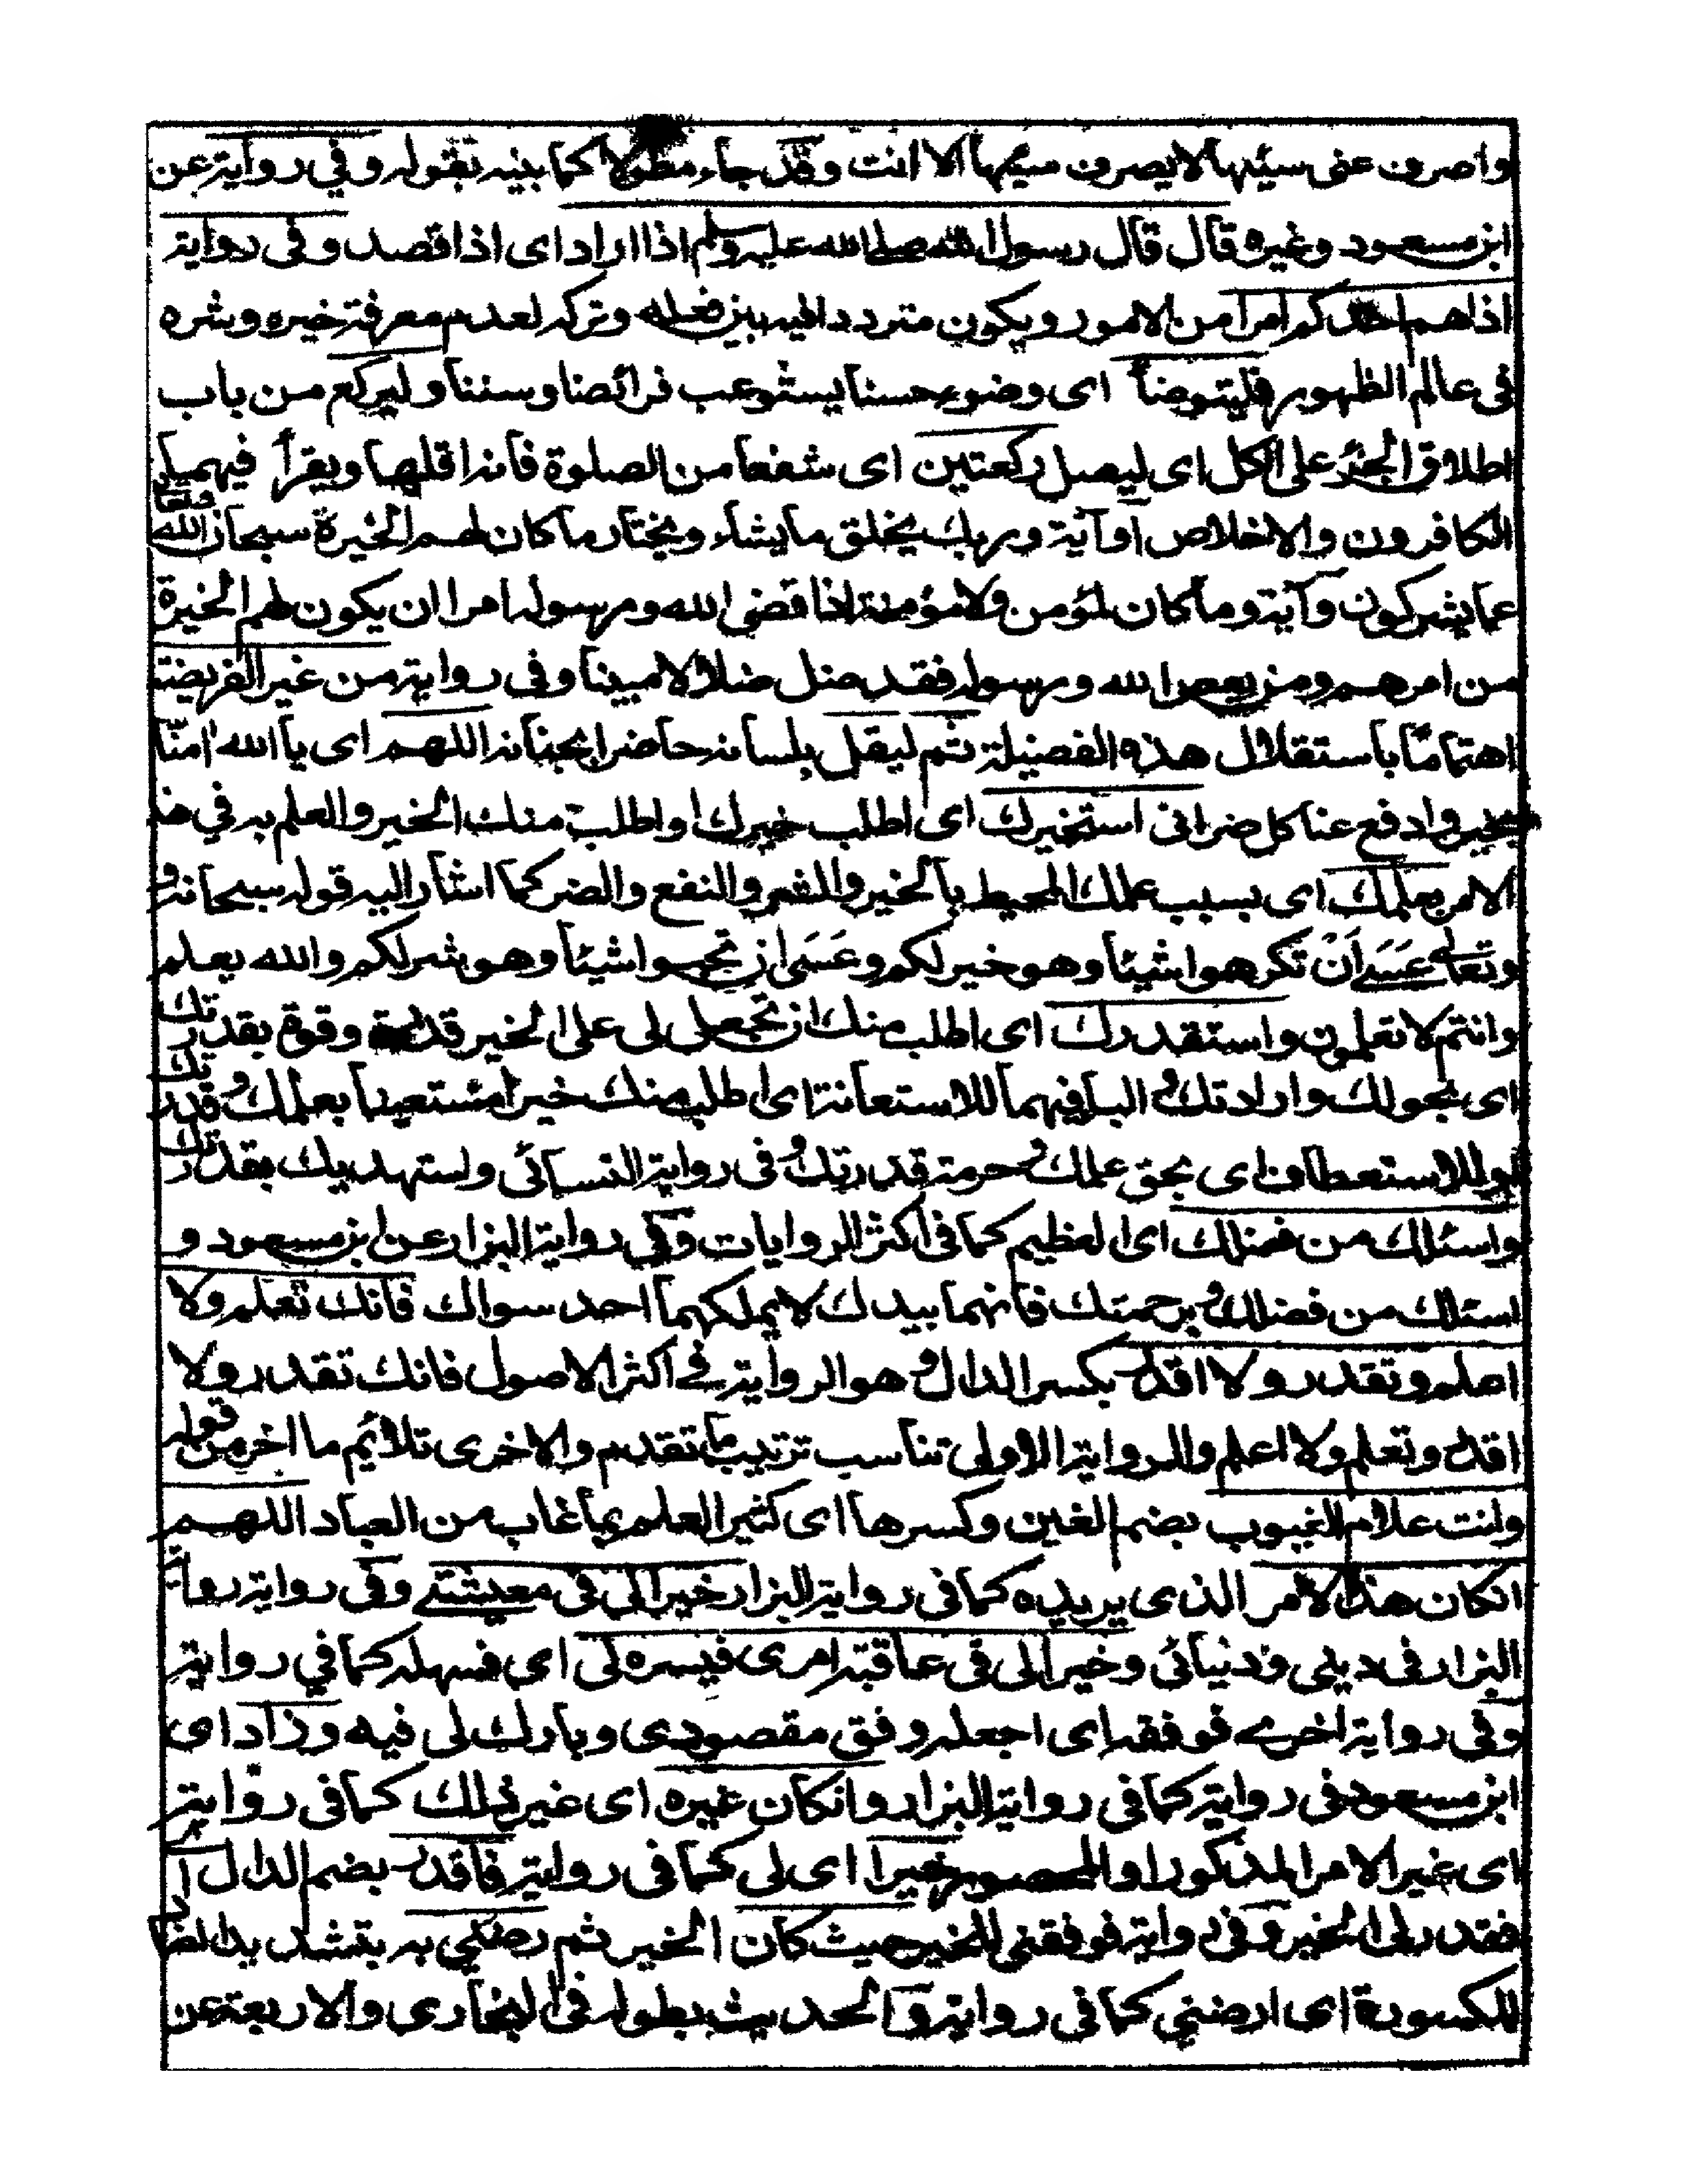 واصرف عنى سيئها لا يصرف سيئها الا انت وقد جاء مطولا كما بينه بقوله وفي رواية عن
ابن مسعود وغيره قال قال رسول الله صلى الله عليه وسلم اذا اراد اى اذا قصد وفى رواية
اذا هم احدكم امرا من الامور ويكون مترددا فيه بين فعله وتركه لعدم معرفة خيره وشره
فى عالم الظهور فليتوضأ اى وضوء حسنا يستوعب فرائضا وسننا وليركع من باب
اطلاق الجزء على الكل اى ليصل ركعتين اى شفعا من الصلوة فانه اقلها ويقرأ فيهما
الكافرون والاخلاص او آية وربك يخلق ما يشاء ويختار ما كان لهم الخيرة سبحان الله وتعالى
عما يشركون وآية وما كان لمؤمن ولا مؤمنة اذا قضى الله ورسوله امرا ان يكون لهم الخيرة
من امرهم ومن يعص الله ورسوله فقد ضل ضلالا مبينا وفى رواية من غير الفريضة
اهتماما باستقلال هذه الفضيلة ثم ليقل بلسانه حاضرا بجنانه اللهم اى يا الله امنّا
بخير وادفع عنا كل ضر انى استخيرك اى اطلب خيرك واطلب منك الخير والعلم به في هذا
الامر بعلمك اى بسبب علمك المحيط بالخير والشر والنفع والضر كما اشار اليه قوله سبحانه و
وتعالى عَسَى اَنْ تكرهوا شيئا وهو خير لكم وعَسَى ان تحبوا شيئا وهو شر لكم والله يعلم
وانتم لا تعلمون واستقدرك اى اطلب منك ان تجعل لى على الخير قدرة وقوة بقدرتك
اى بحولك وارادتك والباء فيهما للاستعانة اى اطلب منك خيرا مستعينا بعلمك وقدرتك
او للاستعطاف اى بحق علمك وحرمة قدرتك وفى رواية النسائى واستهديك بقدرتك
واسئلك من فضلك اى العظيم كما فى اكثر الروايات وفي رواية البزار عن ابن مسعود و
اسئلك من فضلك وبرحمتك فانهما بيدك لا يملكهما احد سواك فانك تعلم ولا
اعلم وتقدر ولا اقدر بكسر الدال وهو الرواية فى اكثر الاصول فانك تقدر ولا
اقدر وتعلم ولا اعلم والرواية الاولى تناسب ترتيب ما تقدم والاخرى تلائم ما اخر من قوله
وانت علام الغيوب بضم الغين وكسرها اى كثير العلم بما غاب من العباد اللهم
ان كان هذا الامر الذى يريده كما فى رواية البزار خيرا لى فى معيشتى وفى رواية رواها
البزار فى دينى ودنيائى وخيرا لى فى عاقبة امرى فيسره لى اى فسهله كما في رواية
وفى رواية اخرى فوفقه اى اجعله وفق مقصودى وبارك لى فيه وزاد اى
ابن مسعود فى رواية كما فى رواية البزار وان كان غيره اى غير ذلك كما فى رواية
اى غير الامر المذكور او المحصور خيرا اى لى كما فى رواية فاقدر بضم الدال
فقدر لى الخير وفى رواية فوفقنى للخير حيث كان الخير ثم رضنى به بتشديد الضاد
المكسورة اى ارضنى كما فى رواية والحديث بطوله فى البخارى والاربعة عن